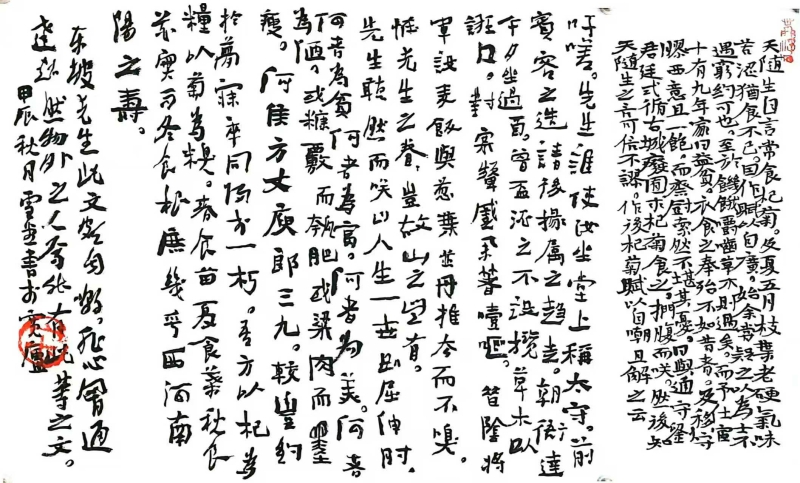 天随生自言常食杞菊。及夏五月枝葉老硬氣味
苦澀猶食不已。因作賦以自廣。始余嘗疑之以為士不
遇窮約可也。至於饑餓嚼嚙草木則過矣。而予仕宦
十有九年家日益貧。衣食之奉殆不如昔者。及移守
膠西意且一飽。而齋厨索然不堪其憂。日與通守劉
君廷式循古城廢圃求杞菊食之。捫腹而咲。然後知
天随生之言可信不謬。作後杞菊賦以自嘲且解之云
吁嗟。先生誰使汝坐堂上稱太守。前
賓客之造請後掾属之趋走。朝衙達
午夕坐過酉。曾盃酒之不設攬草木以
誑口。對案顰蹙舉箸噎嘔。昔陰将
軍設麦飯與葱葉井丹推去而不嗅。
怪先生之眷眷豈故山之無有。
先生听然而咲曰人生一世如屈伸肘。
何者為貧何者為富。何者為美。何者
為陋。或糠覈而瓠肥或粱肉而墨
瘦。何侯方丈庾郎三九。較豐約
於夢寐卒同歸於一朽。吾方以杞為
糧以菊為糗。春食苗夏食葉秋食
花實而冬食根庶幾乎西河南
陽之壽。
东坡先生此文自嘲。非心胷通
達超然物外之人焉能有此等之文。
甲辰秋月雪書於廬